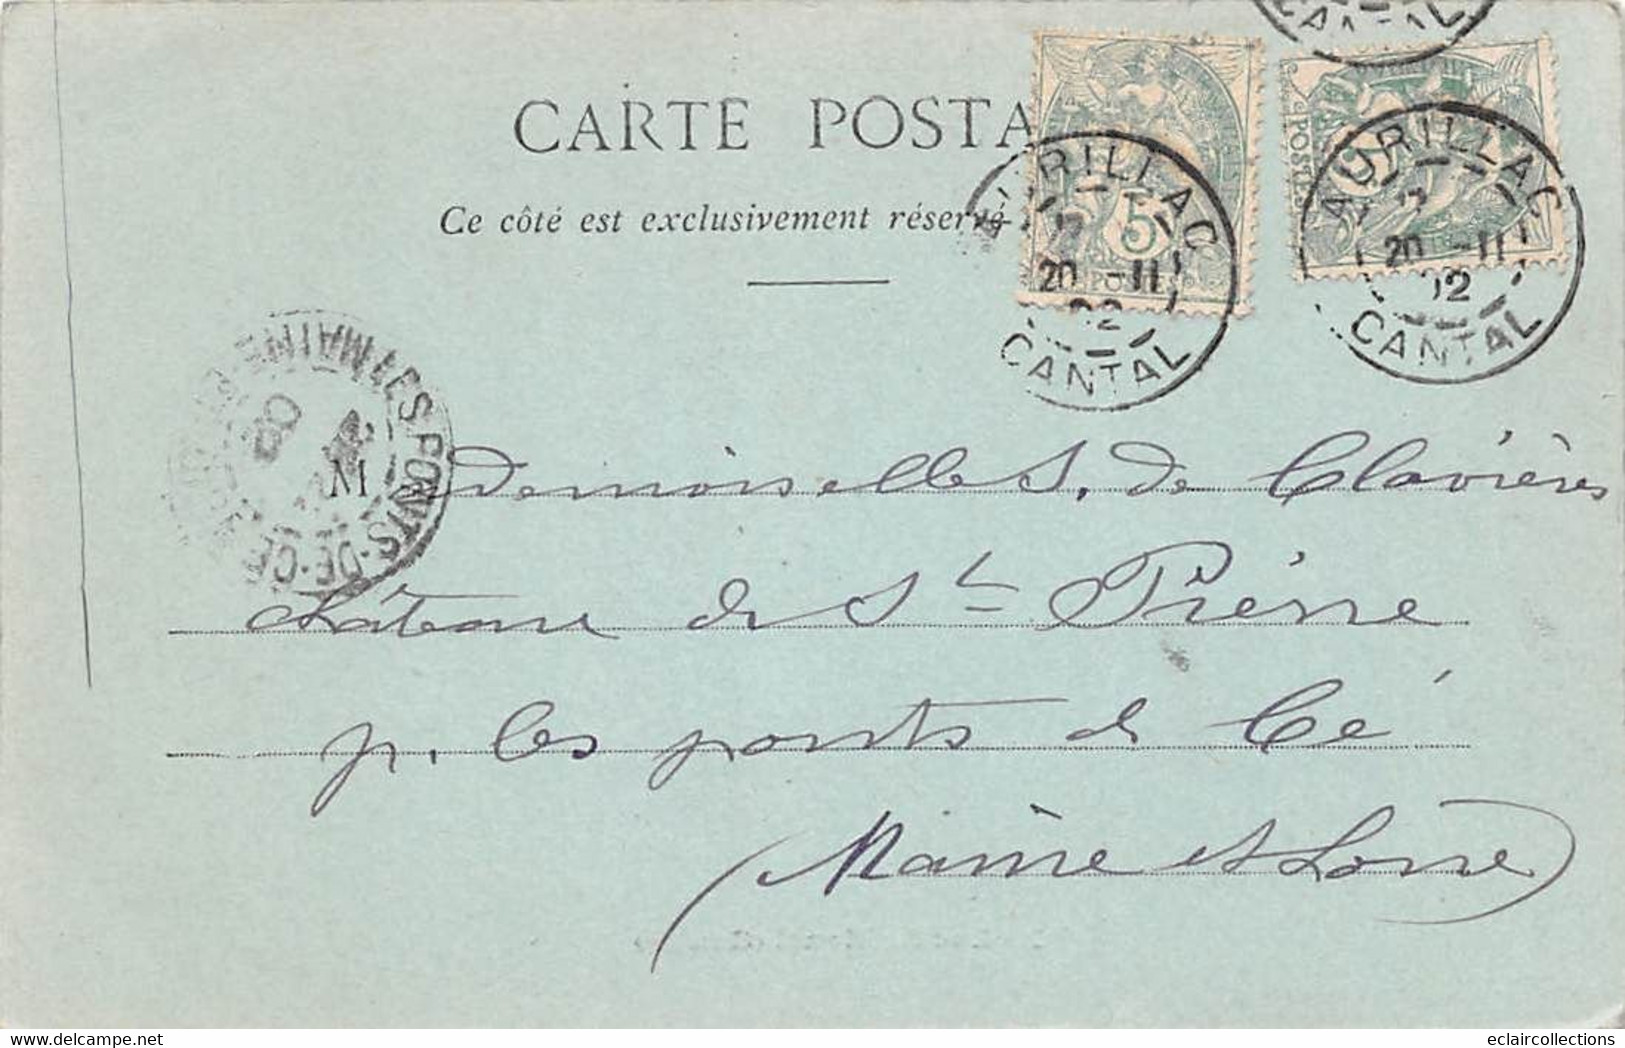 CARTE POSTA
Ce côté est exclusivement réservé
POSTES
5
POSTES
AURILLAC
20 -11
02
CANTAL
AURILLAC
20 -11
02
CANTAL
CANTAL
LES PONTS-DE-CÉ
MAINE
Mdemoiselles. de Clavières
château de St Pierre
p. les ponts de Cé
(Maine et Loire)
eclaircollections